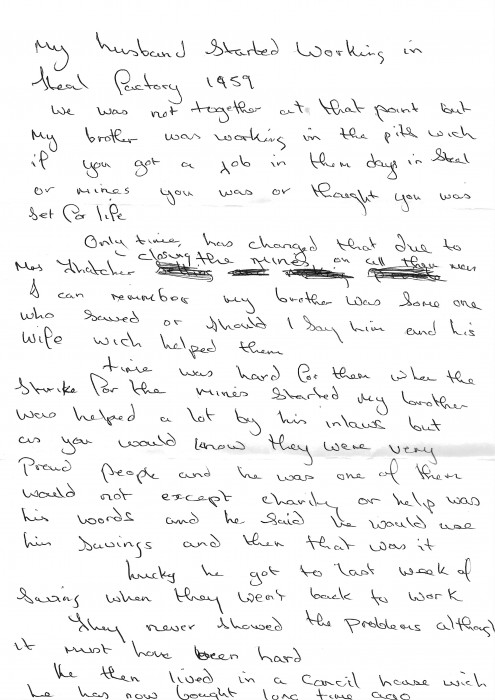 My husband started working in
Steal Factory 1959
We was not together at that point but
My brother was working in the pits wich
if you got a job in them days in Steal
or mines you was or thaught you was
set for life
Only time, has changed that due to
Mrs Thatcher closing the mines, on all
I can remember my brother was some one
who saved or should I say him and his
wife wich helped them
time was hard for them when the
Strike for the mines started My brother
was helped a lot by his inlaws but
as you would know they were very
Proud People and he was one of them
would not except charity or help was
his words and he said he would use
his savings and then that was it
Lucky he got to last week of
Saving when they went back to work
They never showed the problems although
it must have been hard
He then lived in a Concil house wich
he has now bought long time ago